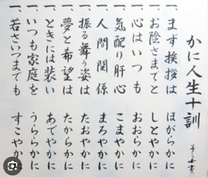 かに人生十訓
一、まず挨拶は ほがらかに
一、お陰さまでと しとやかに
一、心はいつも おおらかに
一、気配り肝心 こまやかに
一、人間関係 まろやかに
一、振る舞う姿は たおやかに
一、夢と希望は たからかに
一、ときには装い あでやかに
一、いつも家庭を うららかに
一、若さいつまでも すこやかに